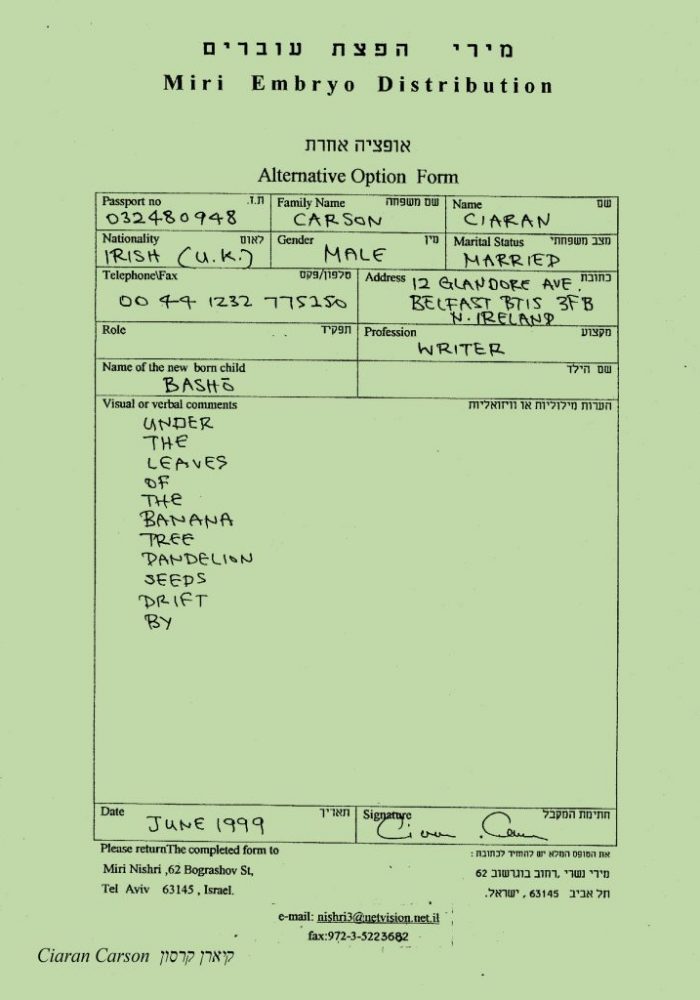 מירי הפצת עוברים
Miri Embryo Distribution
אופציה אחרת
Alternative Option Form
Passport no ת.ז. Family Name שם משפחה Name שם
032480948 CARSON CIARAN
Nationality לאום Gender מין Marital Status מצב משפחתי
IRISH (U.K.) MALE MARRIED
Telephone\Fax טלפון/פקס Address כתובת
00 44 1232 775250 12 GLANDORE AVE.
BELFAST BT15 3FB
N. IRELAND
Role תפקיד Profession מקצוע
WRITER
Name of the new born child שם הילד
BASHŌ
Visual or verbal comments הערות מילוליות או וויזואליות
UNDER
THE
LEAVES
OF
THE
BANANA
TREE
DANDELION
SEEDS
DRIFT
BY
Date תאריך Signature חתימת המקבל
JUNE 1999 Ciaran Carson
Please returnThe completed form to את הטופס המלא יש להחזיר לכתובת :
Miri Nishri ,62 Bograshov St, מירי נשרי ,רחוב בוגרשוב 62
Tel Aviv 63145 , Israel. תל אביב 63145 , ישראל.
e-mail: nishri3@netvision.net.il
fax:972-3-5223682
Ciaran Carson קיארן קרסון